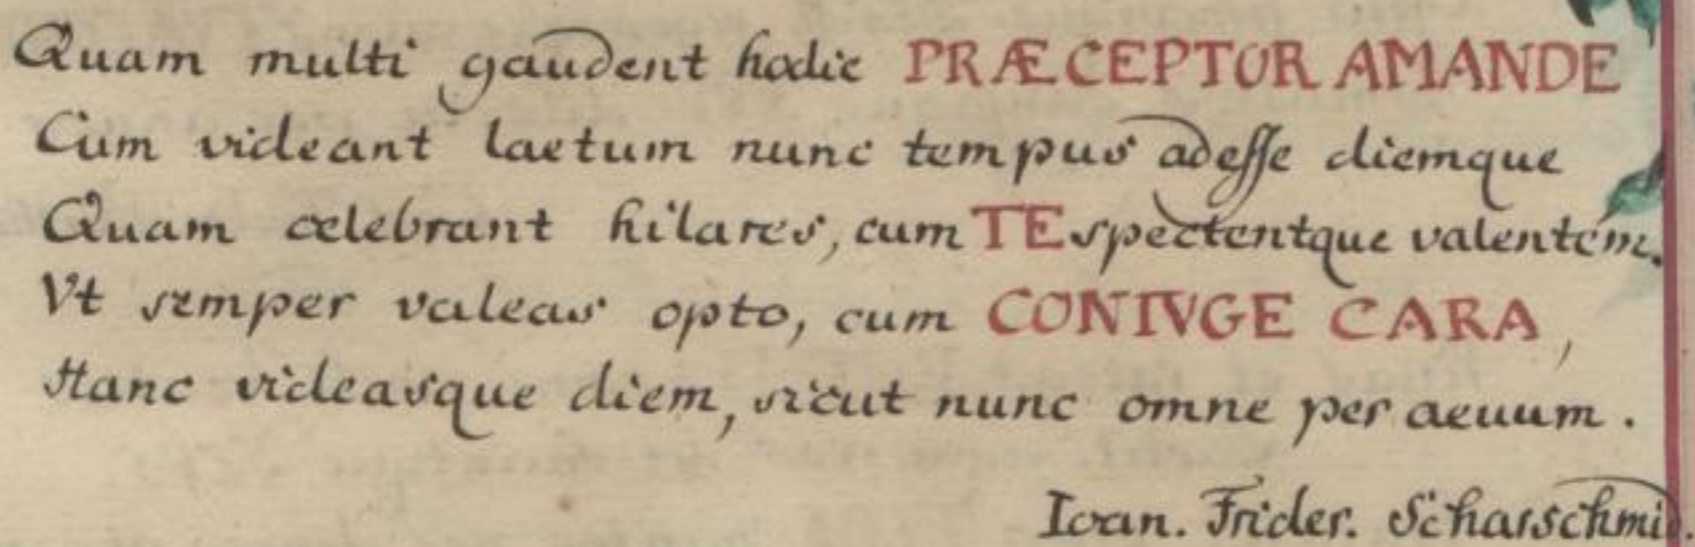 Quam multi gaudent hodie PRÆCEPTOR AMANDE
Cum videant laetum nunc tempus adesse diemque
Quam celebrant hilares, cum TE spectentque valentem.
Vt semper valeas opto, cum CONIVGE CARA,
Hanc videasque diem, sicut nunc omne per aeuum.
Ioan. Frider. Scharschmid.